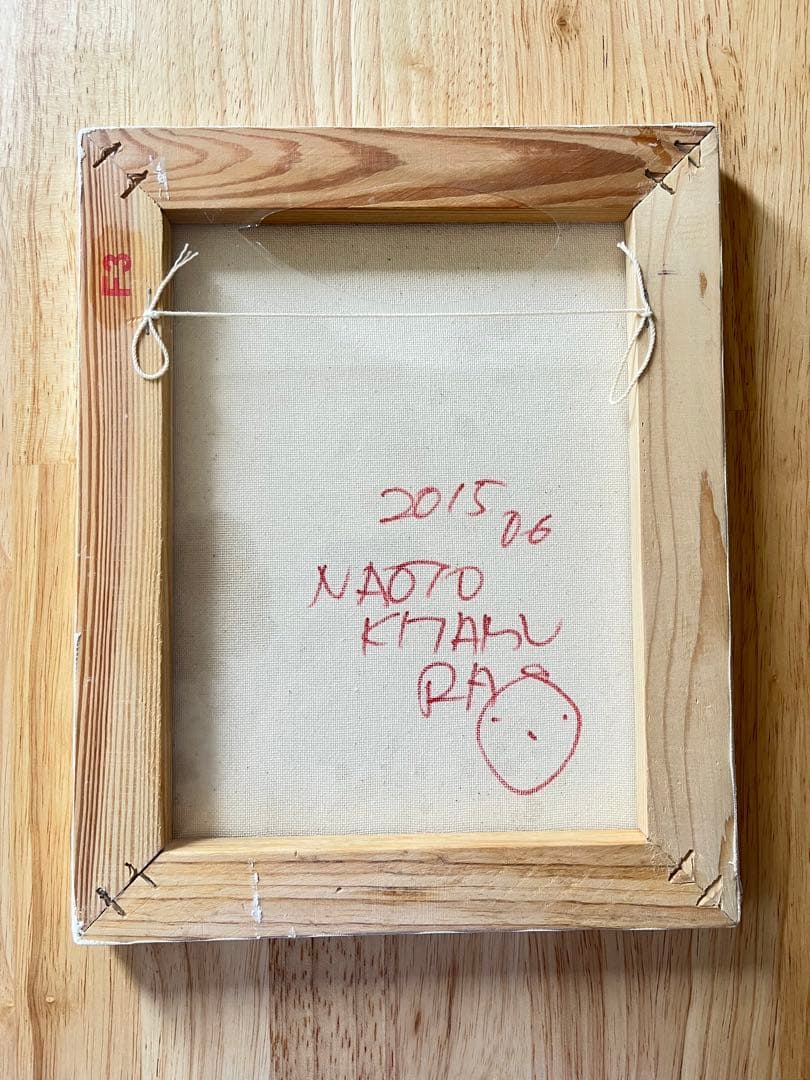 F3
2015 06
NAOTO
KITAMU
RA